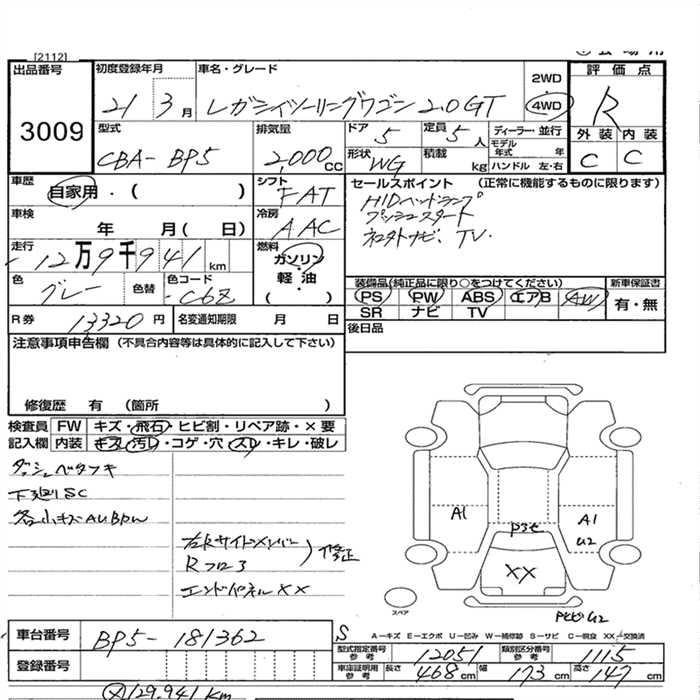 [2112]
出品番号
3009
初度登録年月
21 3月
車名・グレード
レガシィツーリングワゴン 2.0GT
2WD
4WD
評価点
R
外装 内装
C C
型式
CBA-BP5
排気量
2,000 CC
ドア 5
定員 5人
形状 WG
積載 kg
ディーラー・並行
モデル年式 年
ハンドル 左・右
車歴
自家用・( )
シフト
FAT
セールスポイント (正常に機能するものに限ります)
HIDヘッドランプ
プッシュスタート
社外ナビ、TV.
車検
年 月( 日)
冷房
AAC
走行
12万9千941km
燃料
ガソリン
軽・油
( ・ )
色
グレー
色替
色コード
C6Z
装備品(純正品に限り○をつけてください)
PS PW ABS エアB AW
SR ナビ TV
新車保証書
有・無
R券 13320円
名変通知期限 月 日
後日品
注意事項申告欄 (不具合内容等は具体的に記入して下さい)
修復歴 有 (箇所 )
検査員 FW キズ・飛石・ヒビ割・リペア跡・×要
記入欄 内装 キズ・汚レ・コゲ・穴・スレ・キレ・破レ
ダッシュベタツキ
下廻りSC
各小キズAUBPW
右Rサイドメンバー
Rフロア
修正
エンドパネルXX
A1
A1
U2
XX
スペア
車台番号
BP5-181362
登録番号
S
A-キズ E-エクボ U-凹み W-補修跡 S-サビ C-腐食 XX-交換済
型式指定番号 参考 12051
類別区分番号 参考 1115
車庫証明用 参考 長さ 468cm 幅 173cm 高さ 147cm
129.941 km